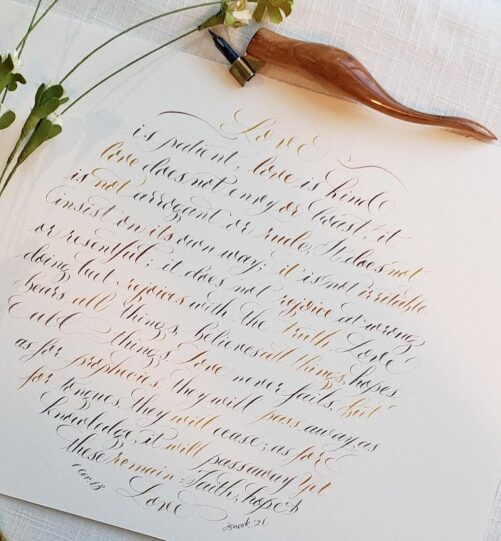 Love
is patient, love is kind
love does not envy or boast; it
is not arrogant or rude. It does not
insist on its own way; it is not irritable
or resentful; it does not rejoice at wrong
doing but rejoices with the truth. Love
bears all things, believes all things, hopes
things. Love never fails, but
as for prophecies, they will pass away, as
for tongues they will cease; as for
knowledge, it will pass away yet
these remain: faith, hope &
Love